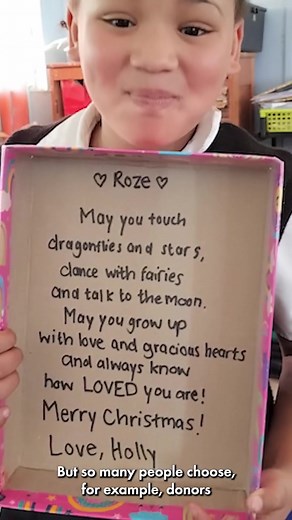 ♡ Roze ♡
May you touch
dragonflies and stars,
dance with fairies
and talk to the moon.
May you grow up
with love and gracious hearts
and always know
how LOVED you are!
Merry Christmas!
Love, Holly
But so many people choose,
for example, donors